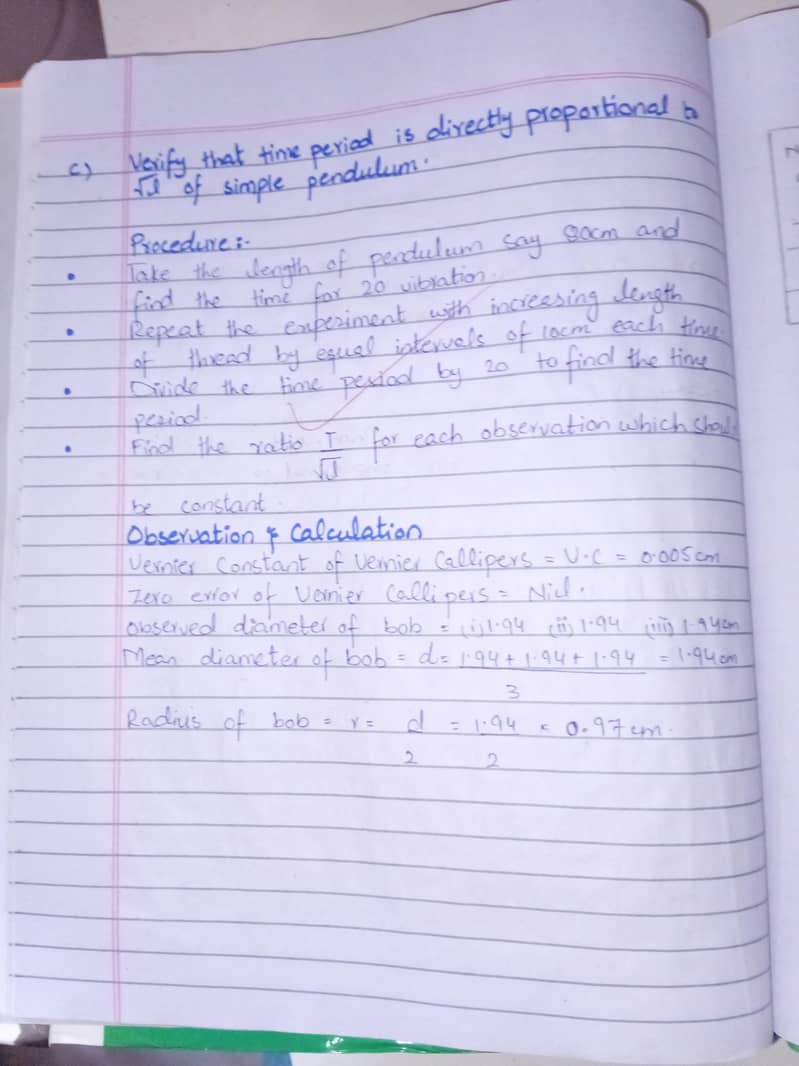 c) Verify that time period is directly proportional to
√l of simple pendulum.
Procedure:-
• Take the length of pendulum say 80cm and
find the time for 20 vibration.
• Repeat the experiment with increasing length
of thread by equal intervals of 10cm each time.
• Divide the time period by 20 to find the time
period.
• Find the ratio T/√l for each observation which shoul
be constant.
Observation & Calculation
Vernier Constant of Vernier Callipers = V.C = 0.005cm
Zero error of Vernier Callipers = Nill.
Observed diameter of bob = (i) 1.94 (ii) 1.94 (iii) 1.94cm
Mean diameter of bob = d = 1.94 + 1.94 + 1.94 / 3 = 1.94cm
Radius of bob = r = d/2 = 1.94/2 = 0.97cm.